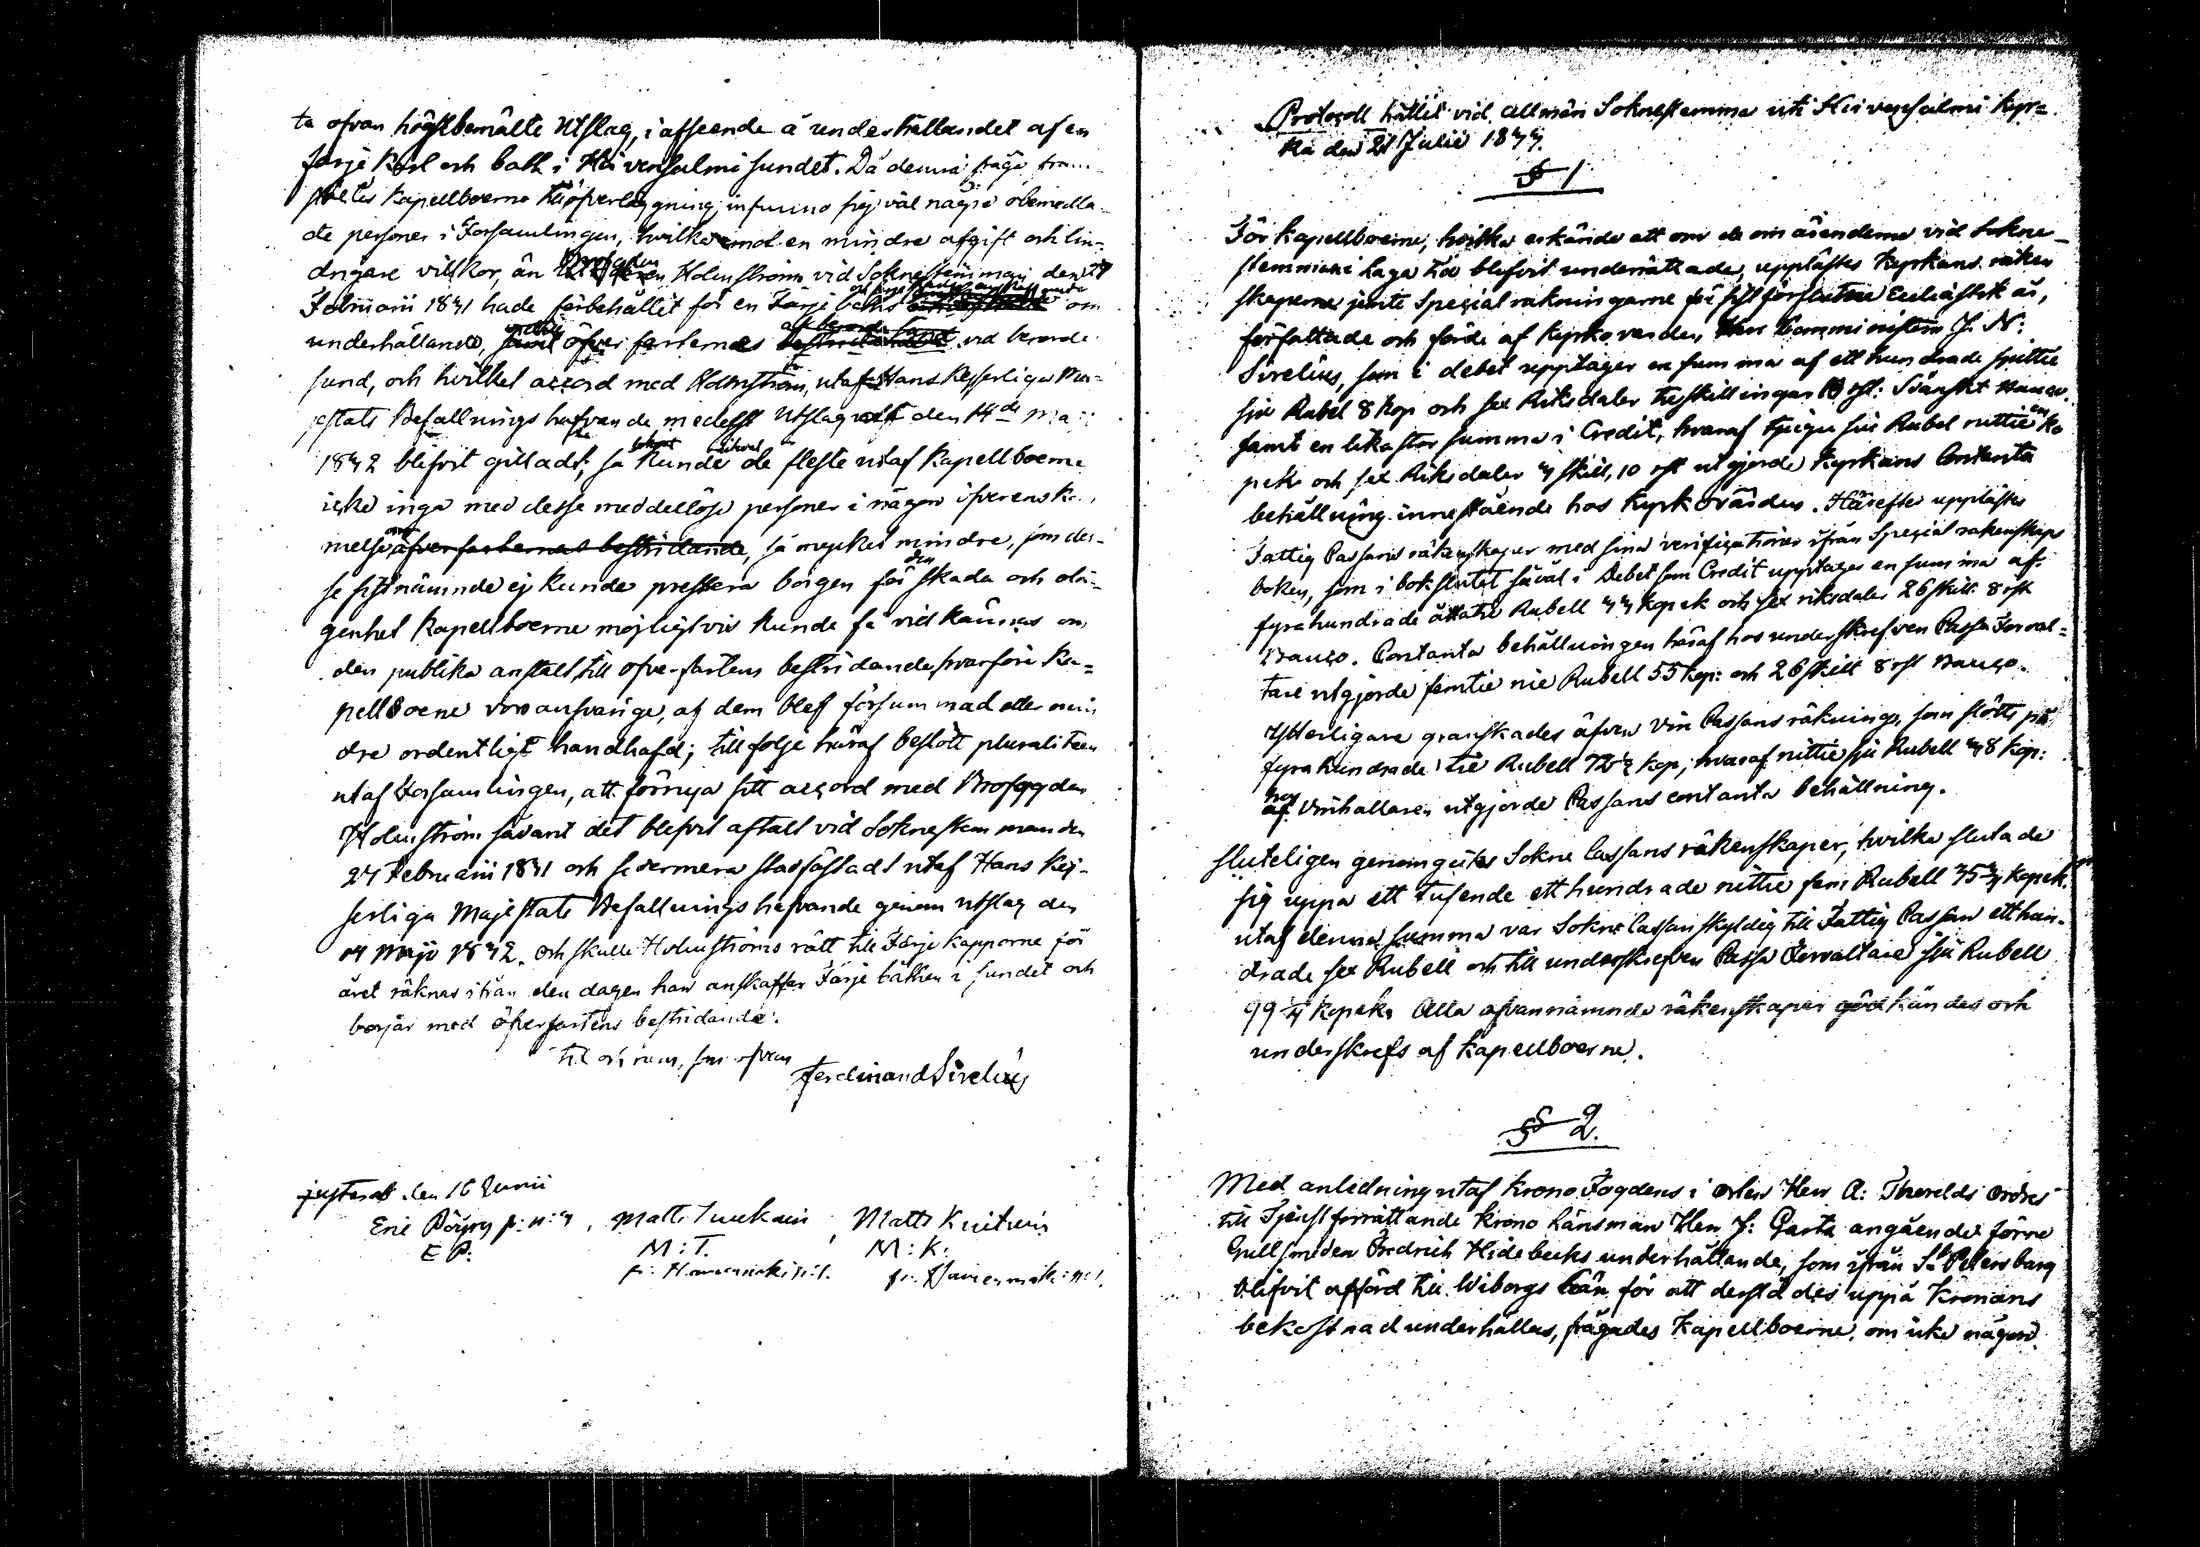 te ofvan högstbemälte Utslag, i afseende å underhållandet af en
färje karl och båth i Hirvensalmi sundet. Då denna fråga fram
stältes Kapellboerne till öfverlägning, infunno sig väl några obemedla-
de personer i Församlingen, hvilka emot en mindre afgift och lin-
drigare villkor, än Holmström vid Soknestämman den 24
Februarii 1841 hade förbehållit för en Färje om
underhållande, öfver farternas vid berörde
sund, och hvilket accord med Holmström, utaf Hans Kejserliga Ma-
jestäts Befallningshafvande medelst Utslag den 14de Maji
1842 blifvit gilladt; så kunde de fleste utaf Kapellboerne
icke inga med desse meddellöse personer i någon öfverensko-
melse öfverfarternas bestridande, så mycket mindre, som des-
se sistnämnde ej kunde prestera borgen för den skada och olä-
genhet Kapellboerne möjligtvis kunde få vidkännas om
den publika anstalt till öfverfartens bestridande hvarföre Ka-
pellboerne voro ansvarige, af dem blef försummad eller min
dre ordentligt handhafd; till följe häraf beslöt pluraliteen
utaf Församlingen, att förnya sitt accord med Brofogden
Holmström såvant det blifvit aftalt vid Sokneskemman den
24 Februarii 1841 och sedermera stadfästadt utaf Hans Kej-
serliga Majestäts Befallningshafvande genom Utslag den
14 Maji 1842. och skulle Holmströms rätt till Färje kapporne för
året räknas ifrån den dagen han anskaffar Färje båthen i sundet och
börjar med öfverfartens bestridande.
Tid och rum, som ofvan
Ferdinand Sirelius
justerat den 16 Junii
Eric Pöyry N:o 4, Matts Tuukain, Matts Kuitunen
E P. M: T. M: K:
Protocoll hållit vid allmän Soknestemma uti Hirvensalmi Kyr-
ka den 21 Julii 1844.
§ 1
För Kapellboerne, hvilka erkände att om de om ärenderne vid Sokne-
stemman i laga tid blefvit underrättade, upplästes Kyrkans räken
skaperne jemte Special räkningarne för sist förflutne Ecclesiastik år,
författade och förde af Kyrkovärden, Herr Comminister J. N:
Sirelius, som i debet upptager en summa af ett hundrade sjuttie
sju Rubel 8 kop och sex Riksdaler tu skillingar 10 rst: Svänskt Banco.
samt en lika stor summa i Credit, hvaraf tjugu sju Rubel nittie en ko
pek och sex Riksdaler 4 skill, 10 rst utgjorde Kyrkans Contanta
behållning innestående hos Kyrkovärden. Härefter upplästes
Fattig Cassans räkenskaper med sina verificationer ifrån Special räkenskaps
boken, som i bokslutet såväl i Debet som Credit upptager en summa af
fyrahundrade åttatie Rubell 44 kopek och sex riksdaler 26 skill: 8 rst
Banco. Contanta behållningen häraf hos underskrefven Cassa Forval-
tare utgjorde femtie nie Rubell 55 kop: och 26 skill 8 rst Banco.
Ytterligare granskades äfven Vin Cassans räkning, som slöts på
fyrahundrade tie Rubell 72½ kop, hvaraf nittie sju Rubell 48 kop:
hos Vinhållaren utgjorde Cassans contanta behållning.
Sluteligen genomgicks Sokne Cassans räkenskaper, hvilka slutade
sig uppå ett tusende ett hundrade nittie fem Rubell 35¾ Kopek.
utaf denna summa var Sokne Cassan skyldig till Fattig Cassan ett hun-
drade sex Rubell och till underskrefven Cassa Forvaltare sju Rubell
99¼ kopek. Alla ofvannämnde räkenskaper godkändes och
underskrefs af Kapellboerne.
§ 2.
Med anledning utaf Krono Fogdens i orten Herr A: Thvelds ordres
till Tjenstförrättande Krono Länsman Herr J: Gartz angående förre
Gullsmeden Fredrich Hidebecks underhållande, som ifrån St Petersburg
blifvit afförd till Wiborgs Län för att derstädes uppå Kronans
bekostnad underhållas, frågades Kapellboerne, om icke någon